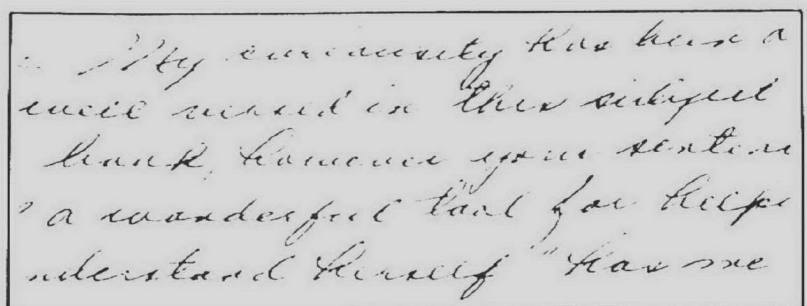 My curiousity has been a
well versed in this subject
book, however your senten
" a wonderful tool for helpi
nderstand herself " has me